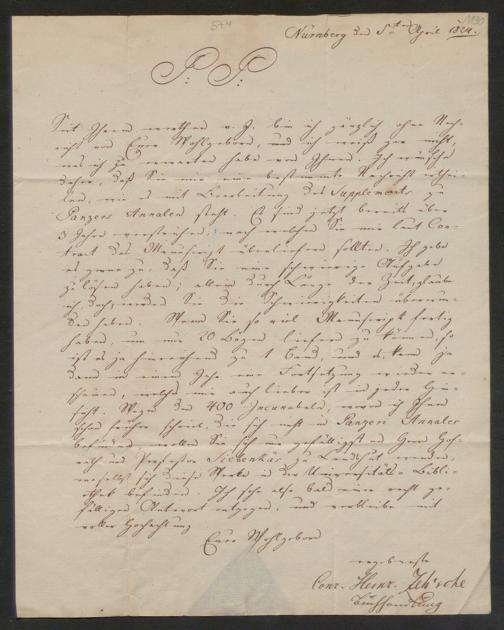 574
Nürnberg den 5ten April 1824.
P: P:
Seit Ihrem v. J. bin ich gänzlich ohne Nach-
richt von Euer Wohlgeboren, und ich weiß gar nicht,
was ich zu erwarten habe von Ihnen. Ich wünsche
daher, daß Sie mir eine bestimmte Nachricht erthei-
len, wie es mit Bearbeitung des Supplements zu
Panzers Annalen steht. Es sind jetzt bereits über
3 Jahre verstrichen, nach welchen Sie mir laut Con-
tract das Manuscript überliefern sollten. Ich gebe
es zwar zu, daß Sie eine schwierige Aufgabe
zu lösen haben; allein durch Länge der Zeit, glaube
ich doch, werden Sie die Schwierigkeiten überwun-
den haben. Wenn Sie so viel Manuscript fertig
haben, um mir 20 Bogen liefern zu können, so
ist es ja hinreichend zu 1 Band, und es kann ja
dann in einem Jahr eine Fortsetzung wieder er-
scheinen, welches mir auch lieber ist in jeder Hin-
sicht. Wegen den 400 Incunabeln, wovon ich Ihnen
schon früher schrieb, die sich nicht in Panzers Annalen
befinden, wollen Sie sich nur gefälligst an Herrn Hof-
rath und Professor Siebenkäs zu Landshut wenden,
woselbst sich diese Werke in der Universitäts Biblio-
thek befinden. Ich sehe also bald einer recht ge-
fälligen Antwort entgegen, und verbleibe mit
voller Hochachtung
Euer Wohlgeboren
ergebenste
Conr. Heinr. Zeh'sche
Buchhandlung